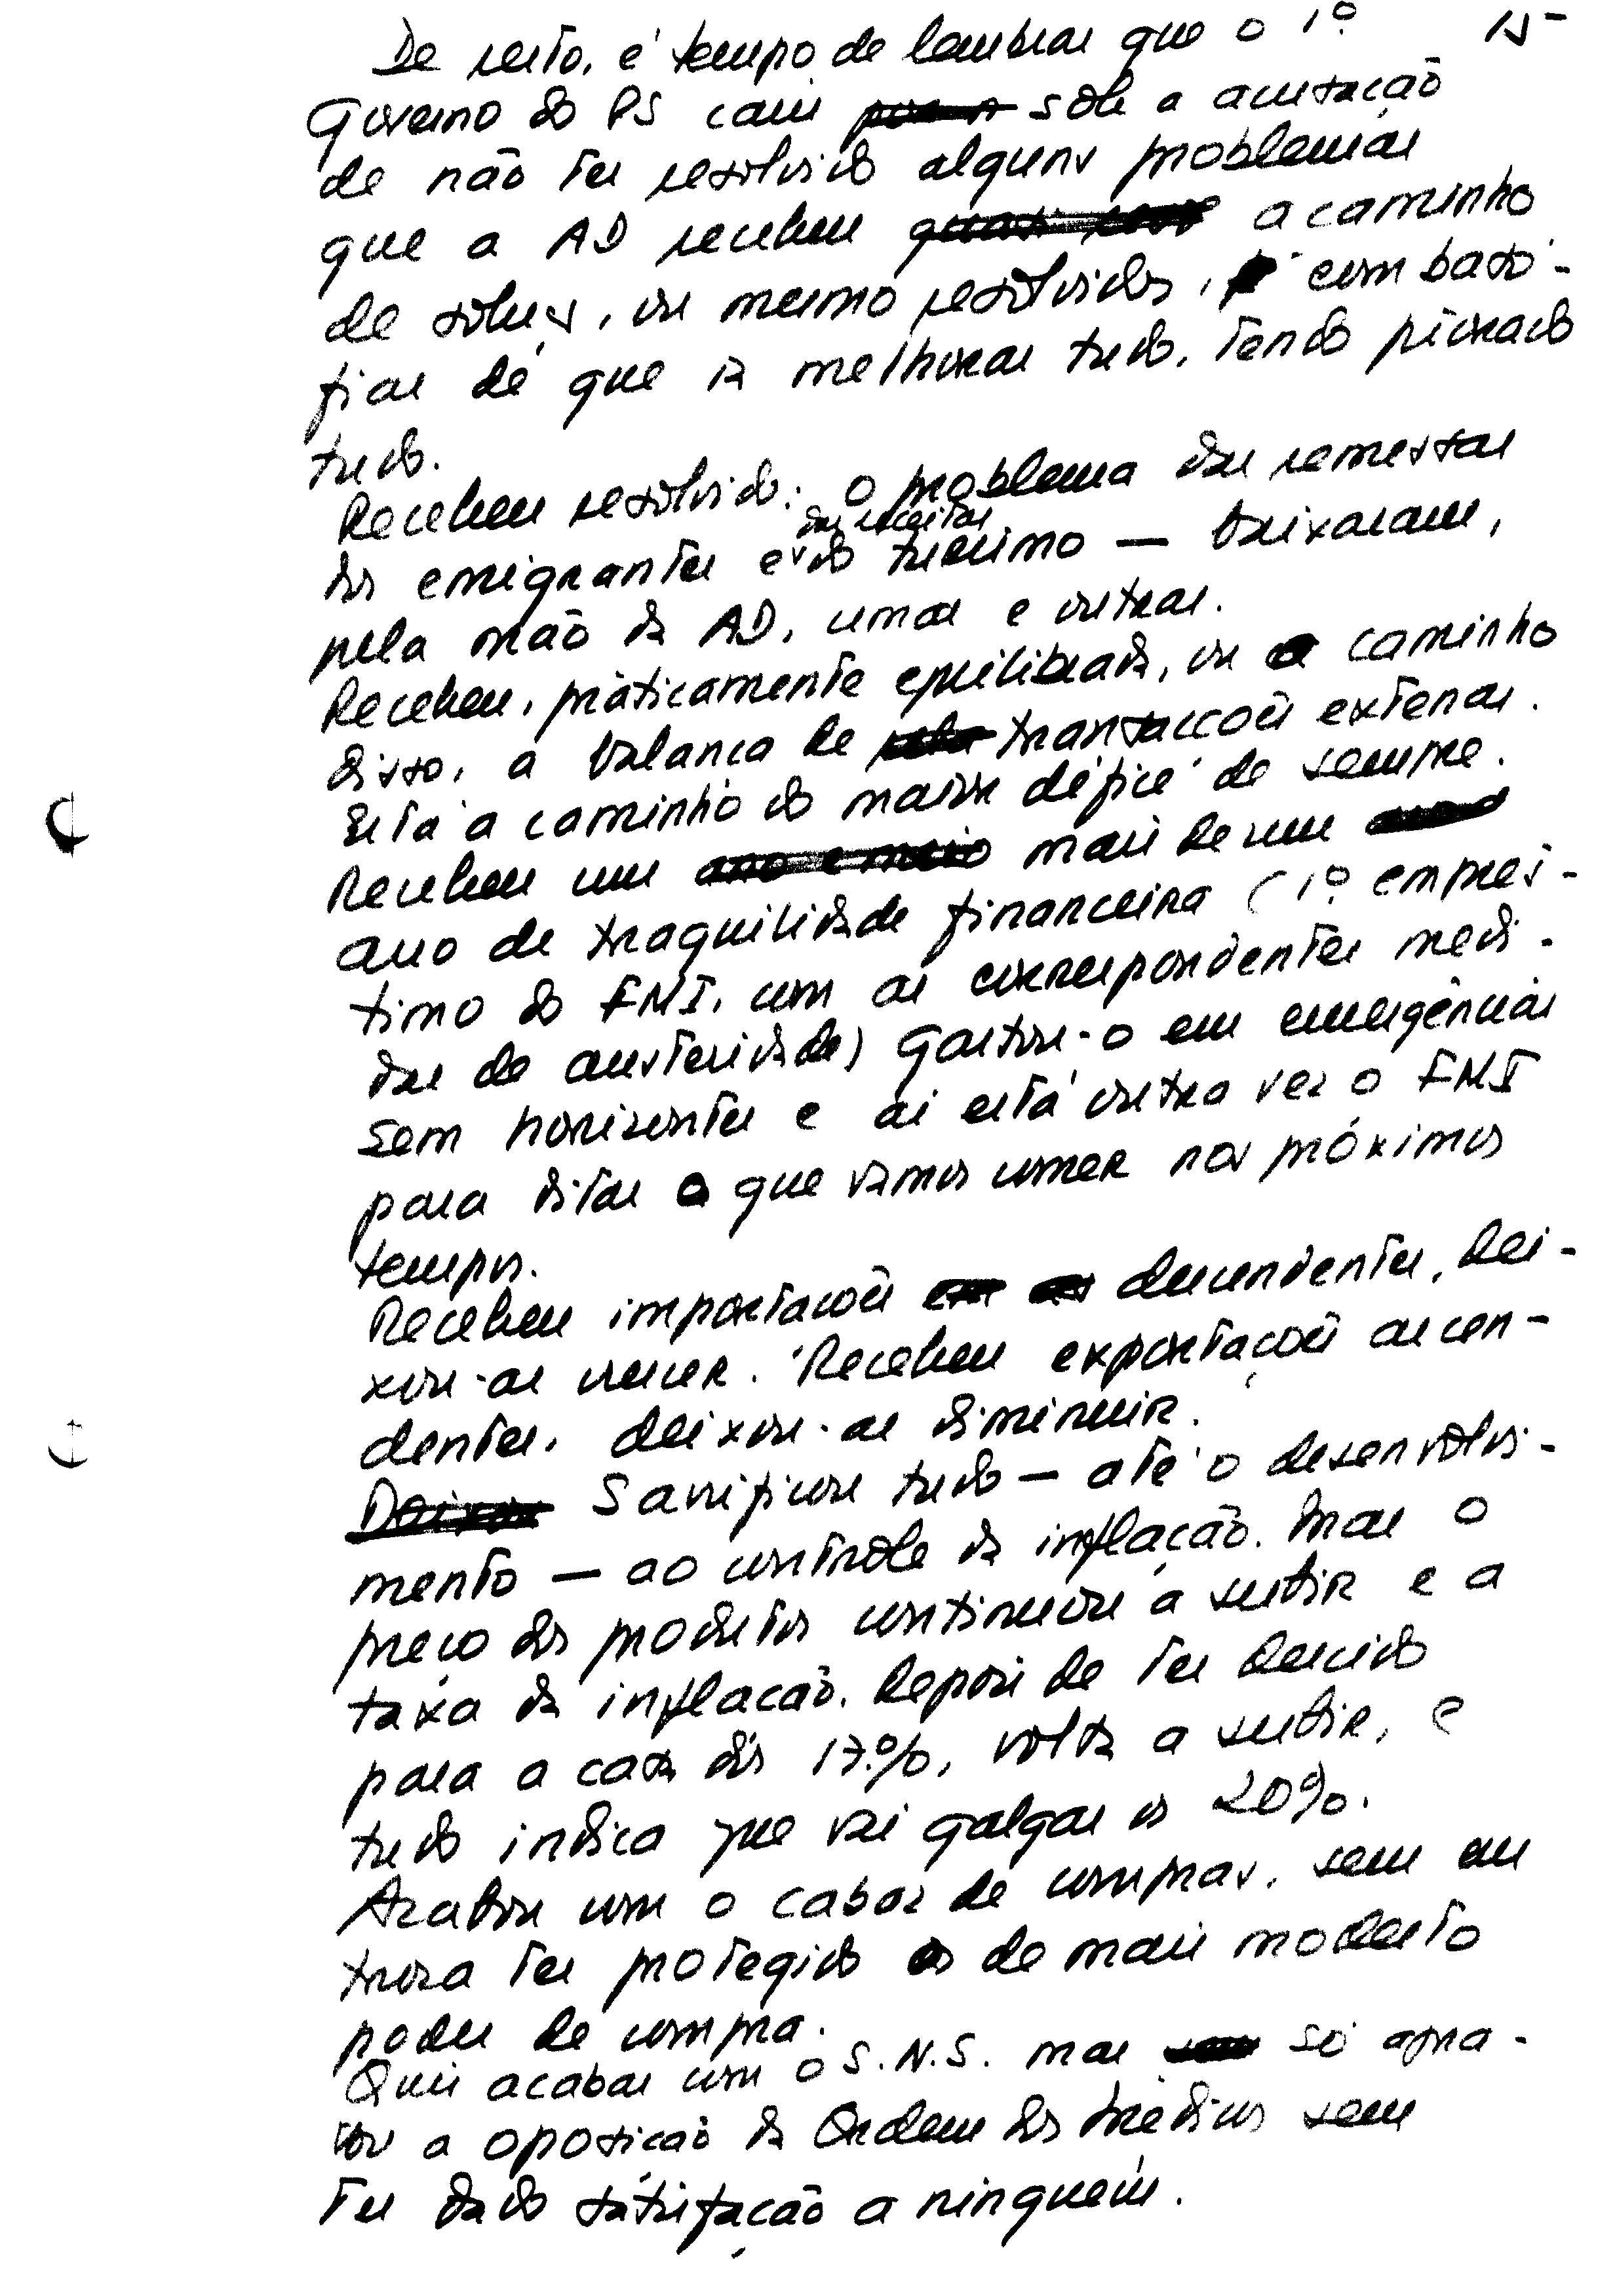 15-
De resto, é tempo de lembrar que o 1º
Governo do PS caiu sob a acusação
de não ter resolvido alguns problemas
que a AD recebeu a caminho
de solução, ou mesmo resolvidos, e com basó-
fias de que ia melhorar tudo, tendo piorado
tudo.
Recebeu resolvido: o problema das remessas
dos emigrantes e das receitas do turismo — baixaram,
pela mão da AD, umas e outras.
Recebeu, praticamente equilibrada, ou a caminho
disso, a balança de transacções externas.
Está a caminho do maior défice de sempre.
Recebeu um mais de um
ano de traquilidade financeira (1º emprés-
timo do FMI, com as correspondentes medi-
das de austeridade) Gastou-o em emergências
sem horizontes e aí está outra vez o FMI
para ditar o que vamos comer nos próximos
tempos.
Recebeu importações descendentes, dei-
xou-as crescer. Recebeu exportações ascen-
dentes, deixou-as diminuir.
Deixou Sacrificou tudo — até o desenvolvi-
mento — ao controle da inflação. Mas o
preço dos produtos continuou a subir e a
taxa da inflação, depois de ter descido
para a casa dos 17%, volta a subir, e
tudo indica que vai galgar os 20%.
Acabou com o cabaz de compras, sem em
troca ter protegido os de mais modesto
poder de compra.
Quis acabar com o S.N.S. mas só apra-
zou a oposição da Ordem dos Médicos sem
ter dado satisfação a ninguém.